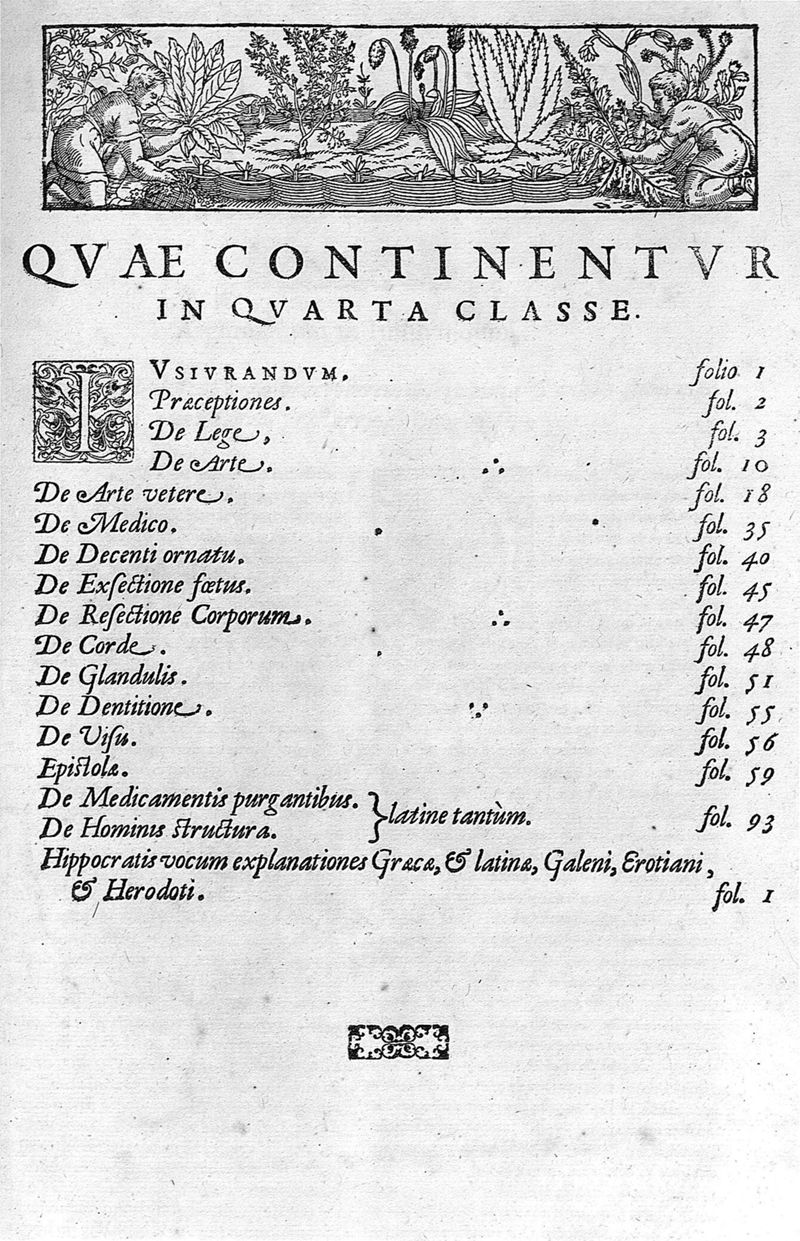 QVAE CONTINENTVR
IN QVARTA CLASSE.
IVSIVRANDVM. folio 1
Præceptiones. fol. 2
De Lege. fol. 3
De Arte. fol. 10
De Arte vetere. fol. 18
De Medico. fol. 35
De Decenti ornatu. fol. 40
De Exſectione fœtus. fol. 45
De Reſectione Corporum. fol. 47
De Corde. fol. 48
De Glandulis. fol. 51
De Dentitione. fol. 55
De Viſu. fol. 56
Epiſtolæ. fol. 59
De Medicamentis purgantibus.
De Hominis ſtructura. } latine tantùm. fol. 93
Hippocratis vocum explanationes Græcæ, & latinæ, Galeni, Erotiani,
& Herodoti. fol. 1